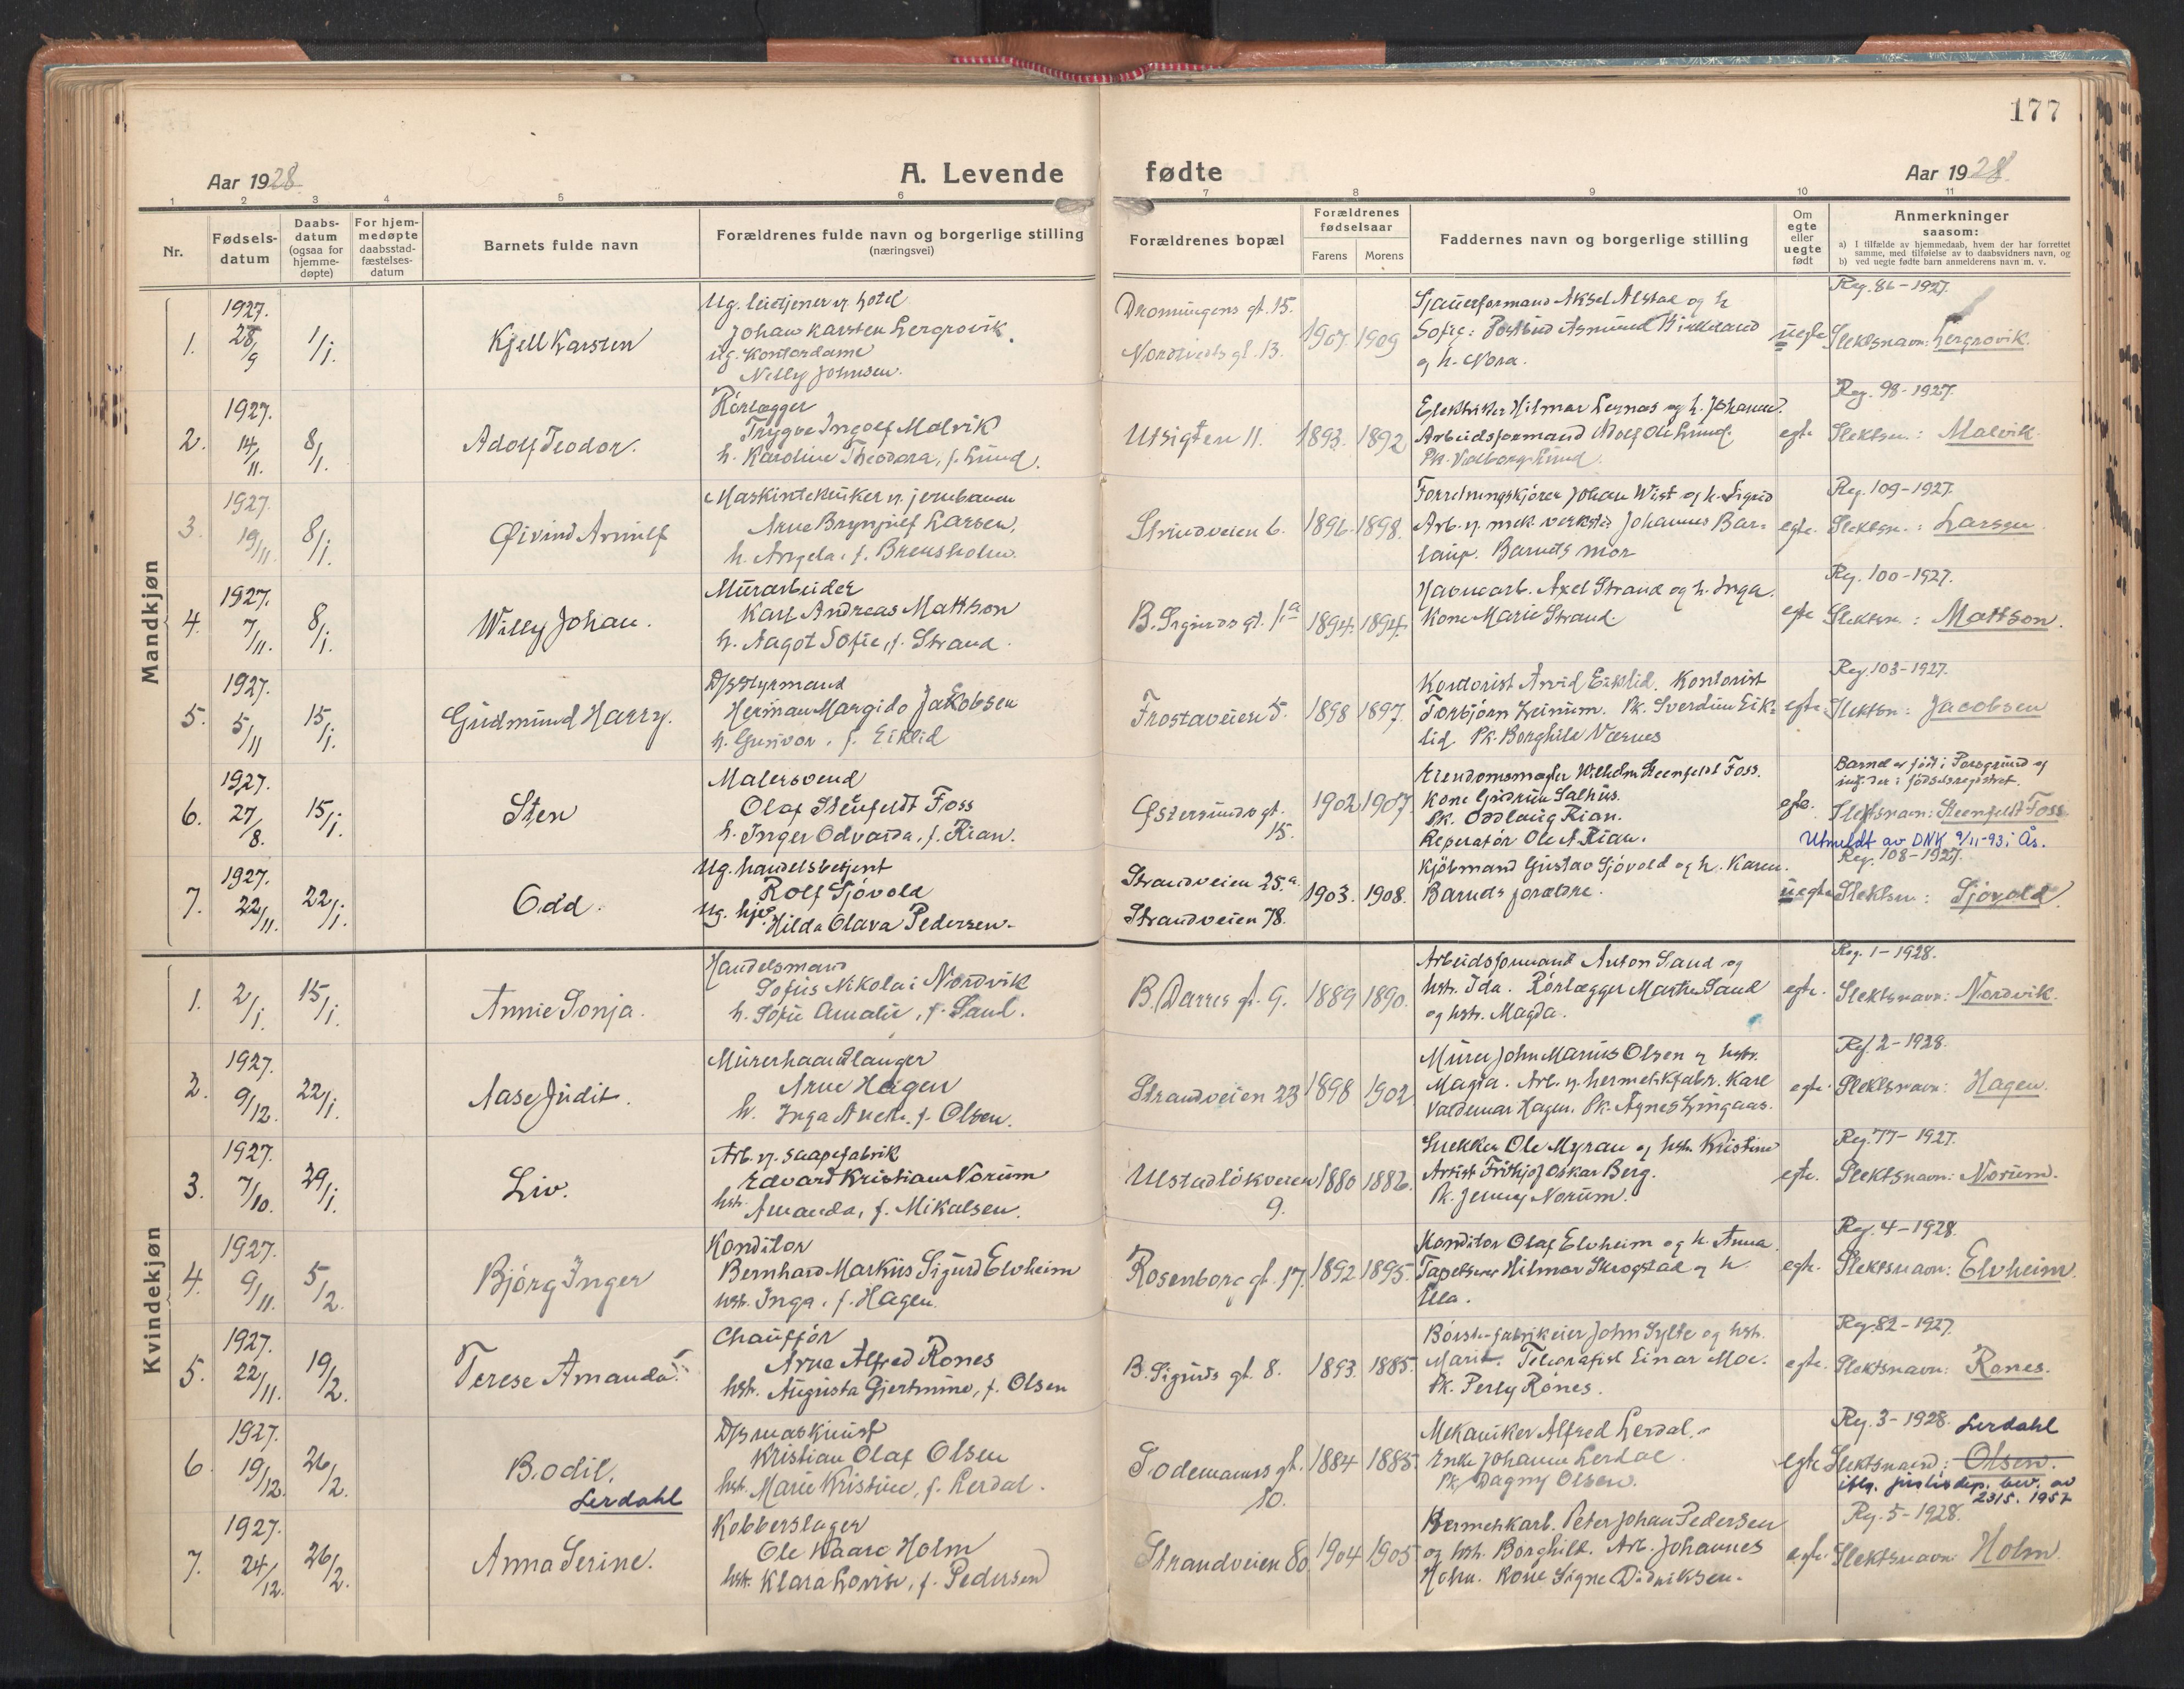 177
Aar 1928
A. Levende fødte
Aar 1928
1 2 3 4 5 6 7 8 9 10 11
Nr.
Fødsels-
datum
Daabs-
datum
(ogsaa for
hjemme-
døpte)
For hjem-
medøpte
daabsstad-
fæstelses-
datum
Barnets fulde navn
Forældrenes fulde navn og borgerlige stilling
(næringsvei)
Forældrenes bopæl
Forældrenes
fødselsaar
Farens Morens
Faddernes navn og borgerlige stilling
Om
egte
eller
uegte
født
Anmerkninger
saasom:
a) I tilfælde av hjemmedaab, hvem der har forrettet
samme, med tilføielse av to daabsvidners navn, og
b) ved uegte fødte barn anmelderens navn m. v.
Mandkjøn
1. 1927. 28/9 1/1.
Kjell Karsten
Ug. v. hotel
Johan Karsten Lergrovik.
Ug. Kontordame
Nelly Johnsen.
Dronningens gt. 15.
13.
1907. 1909
Sjauerformand Aksel Alstad og h.
Sofie: Postbud Asmund
og h. Nora.
uegte
Reg. 86-1927.
Slektsnavn: Lergrovik.
2. 1927. 14/11. 8/1.
Adolf Teodor.
Rørlægger
Trygve Ingolf Malvik
h. Karoline Theodora, f. Lund.
Utsigten 11.
1893. 1892
Elektriker Hilmar Lernæs og h. Johanne.
Arbeidsformand Adolf Ole Lund.
Pk. Valborg Lund.
egte
Reg. 98-1927.
Slektsn.: Malvik.
3. 1927. 19/11. 8/1.
Øivind Arnulf
Maskintekniker v. jernbanen
Arne Brynjulf Larsen,
h. Angela, f. Brensholm.
Strindveien 6.
1896. 1898.
Forretningskjører Johan Wist og h. Sigrid
Arb. v. mek. verksted Johannes Bar-
laup. Barnets mor
egte.
Reg. 109-1927.
Slektsn.: Larsen.
4. 1927. 7/11. 8/1.
Willy Johan.
Murarbeider
Karl Andreas Mattson
h. Aagot Sofie, f. Strand.
B. Sigurds gt. 1a
1894. 1894.
Havnearb. Axel Strand og h. Inga.
Kone Marie Strand.
egte
Reg. 100-1927.
Slektsn.: Mattson.
5. 1927. 5/11 15/1.
Gudmund Harry.
D/S styrmand
Herman Margido Jakobsen
h. Gunvor, f. Eiklid
Frostaveien 5.
1898 1897.
Kontorist Arvid Eiklid. Kontorist
Torbjørn Leinum. Pk. Sverdine Eik-
lid. Pk. Borghild Værnes
egte.
Reg. 103-1927.
Slektsn: Jacobsen
6. 1927. 27/8. 15/1.
Sten
Malersvend
Olaf Stenfeldt Foss
h. Inger Odvarda, f. Rian.
Østersunds gt.
15.
1902 1907.
Eiendomsmægler Wilhelm Steenfeldt Foss.
Kone Gudrun Salhus.
Pk. Oddlaug Rian.
Reperatør Ole A. Rian.
egte.
Barnet er født i Porsgrund og
innf. der i fødselsregistret.
Slektsnavn: Steenfeldt Foss
Utmeldt av DNK 9/11-93 i Ås.
7. 1927. 22/11. 22/1.
Odd.
Ug. handelsbetjent
Rolf Sjøvold
Ug. hjv. Hilda Olava Pedersen.
Strandveien 25.a
Strandveien 78.
1903. 1908.
Kjøbmand Gustav Sjøvold og h. Karen.
Barnets forældre.
uegte
Reg. 108-1927.
Slektsn: Sjøvold
Kvindekjøn
1. 2/1. 15/1.
Annie Sonja.
Handelsmand
Sofus Nikolai Nordvik
h. Sofie Amalie, f. Sand.
B. Darres gt. 9.
1889 1890.
Arbeidsformand Anton Sand og
hstr. Ida. Rørlægger Martin Sand
og hstr. Magda.
egte.
Reg. 1-1928.
Slektsnavn: Nordvik.
2. 1927. 9/12. 22/1.
Aase Judit.
Murerhaandlanger
Arne Hagen
h. Inga Anette f. Olsen.
Strandveien 23
1898 1902
Murer John Marius Olsen og hstr.
Magda. Arb. v. hermetikfabr. Karl
Valdemar Hagen. Pk. Agnes Lingaas.
egte.
Reg. 2-1928.
Slektsnavn: Hagen.
3. 1927. 7/10. 29/1.
Liv.
Arb. v. saapefabrik
Edvard Kristian Norum
hstr. Amanda, f. Mikalsen.
Ulstadløkveien
9.
1880 1882.
Snekker Ole Myran og hstr. Kristine
Artist Fritjof Oskar Berg.
Pk. Jenny Norum.
egte.
Reg. 77-1927.
Slektsnavn: Norum.
4. 1927. 9/11. 5/2.
Bjørg Inger
Konditor
Bernhard Markus Sigurd Elvheim
hstr. Inga, f. Hagen.
Rosenborg gt. 17.
1892 1895.
Konditor Olaf Elvheim og h. Anna.
Tapetserer Hilmar Skrogstad og h.
Ella.
egte.
Reg. 4-1928.
Slektsnavn: Elvheim.
5. 1927. 22/11. 19/2.
Terese Amanda.
Chauffør
Arne Alfred Rones
hstr. Augusta Gjertmine, f. Olsen
B. Sigurds gt. 8.
1893. 1885.
Børstefabrikeier John Sylte og hstr.
Marit. Telegrafist Einar Moe.
Pk. Perly Rønes.
egte.
Reg. 82-1927.
Slektsnavn: Rones.
6. 1927. 19/12. 26/2.
Bodil.
Lerdahl
D/S maskinist
Kristian Olaf Olsen
hstr. Marie Kristine, f. Lerdal.
Todemanns gt.
10.
1884 1885.
Mekaniker Alfred Lerdal.
Enke Johanne Lerdal.
Pk. Dagny Olsen.
egte
Reg. 3-1928. Lerdahl
Slektsnavn: Olsen.
iflg. justisdep. bev. av
23/5. 1952
7. 1927. 24/12. 26/2.
Anna Serine.
Kobberslager
Ole Waarø Holm
hstr. Klara Lovise, f. Pedersen
Strandveien 80
1904 1905
Hermetikarb. Peter Johan Pedersen
og hstr. Borghild. Arb. Johannes
Holm. Kone Signe Didriksen.
egte.
Reg. 5-1928.
Slektsnavn: Holm.